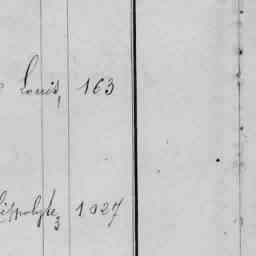 Louis, 163
Hippolyte, 1027